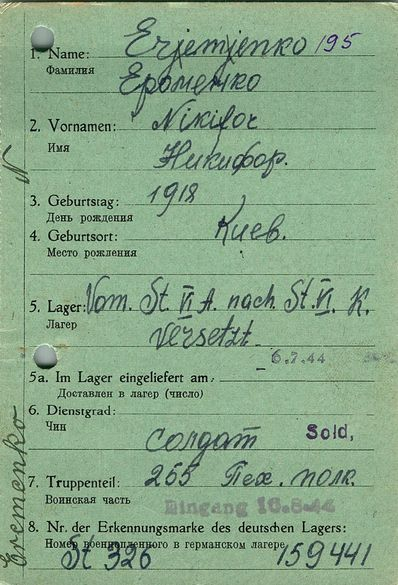 1. Name: Erjemjenko 195
Фамилия
Ероменко
2. Vornamen: Nikifor
Имя
Никифор.
N
3. Geburtstag: 1918
День рождения
4. Geburtsort: Киев.
Место рождения
5. Lager: Vom. St. VI A. nach. St. VI. K.
Лагер
versetzt.
6.7.44
5a. Im Lager eingeliefert am:
Доставлен в лагер (число)
6. Dienstgrad:
Чин
солдат Sold.
7. Truppenteil: 255 Пех. полк.
Воинская часть
Eingang 16.8.44
8. Nr. der Erkennungsmarke des deutschen Lagers:
Номер военнопленного в германском лагере
St 326 159441
Eremenko